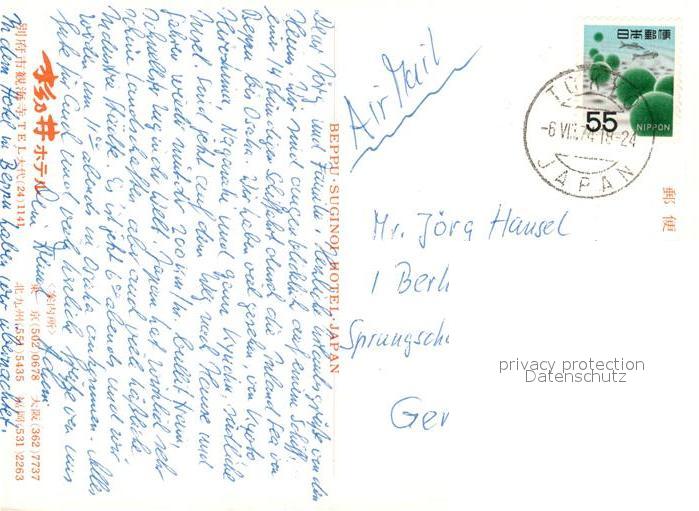 Air Mail
日本郵便
55
NIPPON
TOKYO
-6 VIII.74 18-24
JAPAN
郵便
Mr. Jörg Hansel
1 Berl
Sprungsch
Ger
privacy protection
Datenschutz
BEPPU-SUGINOI HOTEL, JAPAN
杉乃井ホテル
別府市観海寺 TEL大代(24)1141
〈案内所〉
東京(502)0678 大阪(362)7737
北九州(551)5435 福岡(531)2263
und Familie, herzliche Urlaubsgrüße von den
Wir sind augenblicklich auf einem Schiff.
einer 14 stündigen Schiffahrt durch die Inland Sea von
Beppu bis Osaka. Wir haben viel gesehen, von Kyoto
Hiroshima, Nagasaki und ganz Kyushu,
und sind jetzt auf dem Weg nach Hause und
fahren wieder mit der 200 km/hr. Bullet Train,
schnellster Zug in der Welt. Japan hat wirklich sehr
schöne Landschaften aber auch viele häßliche
Industrie Städte. Es ist jetzt 6 abends und wir
werden um 11 abends in Osaka ankommen. Alles
Gute für Euch und viele herzliche Grüße von uns
In dem Hotel in Beppu haben wir übernachtet.